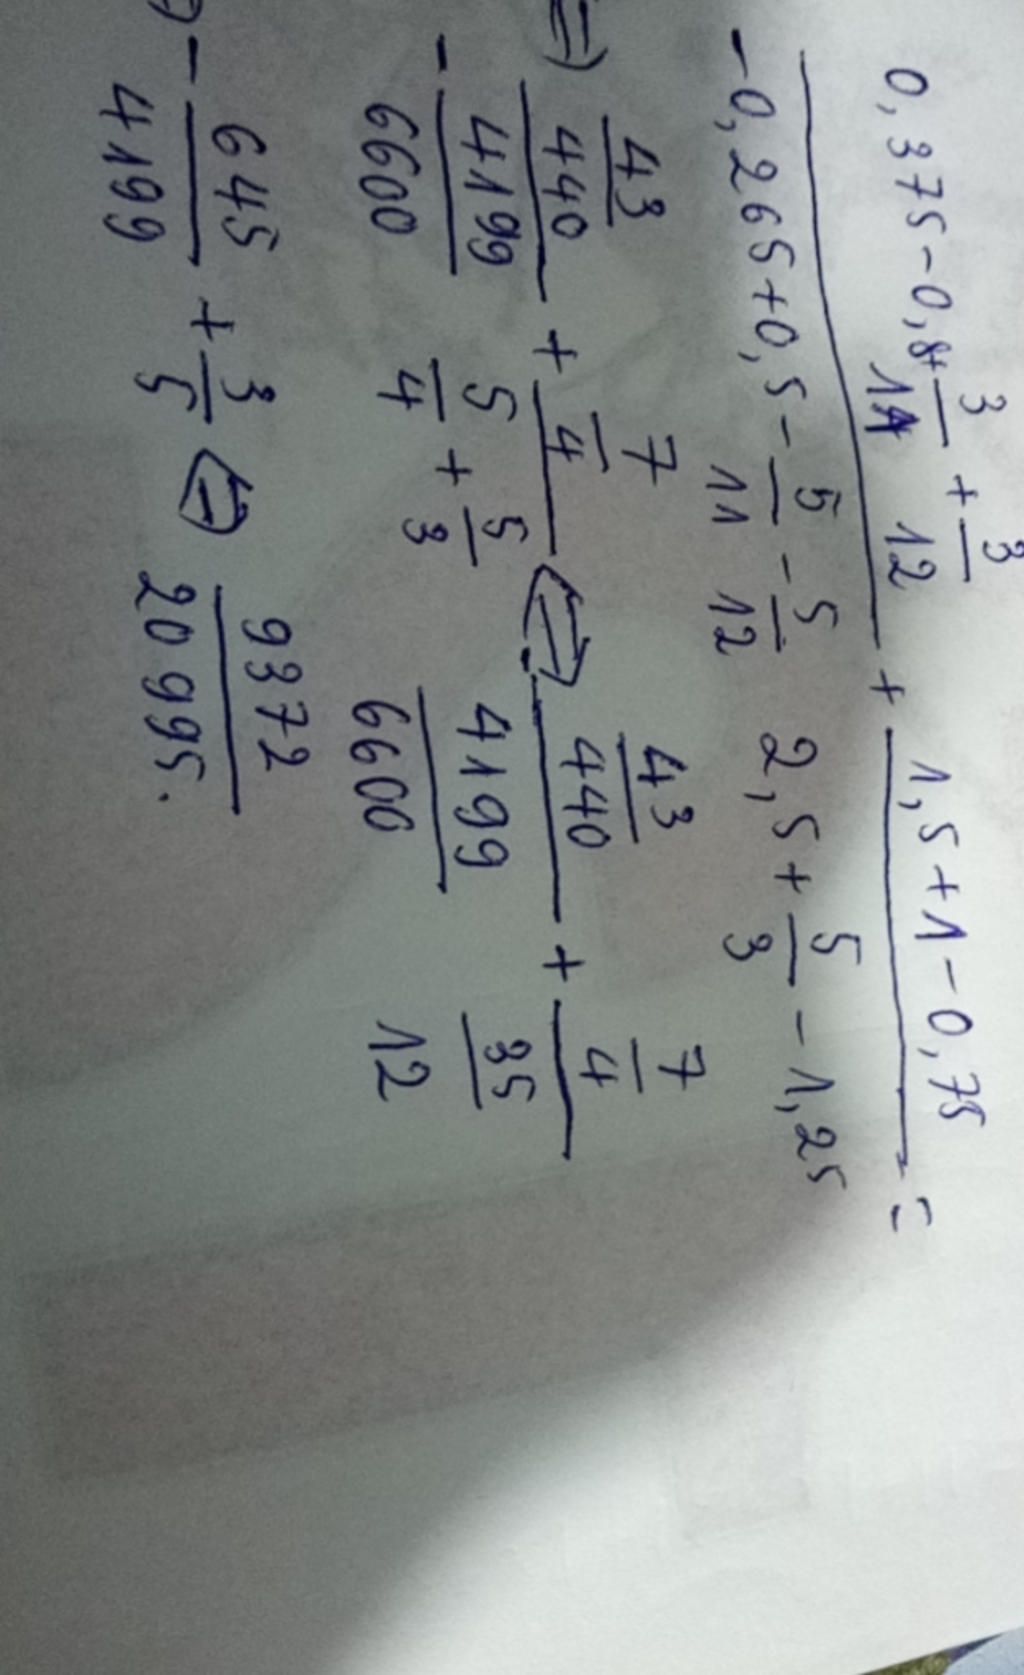 0,375-0,8+ 3/11 + 3/12 / -0,265+0,5 - 5/11 - 5/12 + 1,5+1-0,75 / 2,5+ 5/3 -1,25 =
=) 43/440 / - 4199/6600 + 7/4 / 5/4 + 5/3 ⇔ - 43/440 / 4199/6600 + 7/4 / 35/12
- 645/4199 + 3/5 ⇔ 9372/20995.